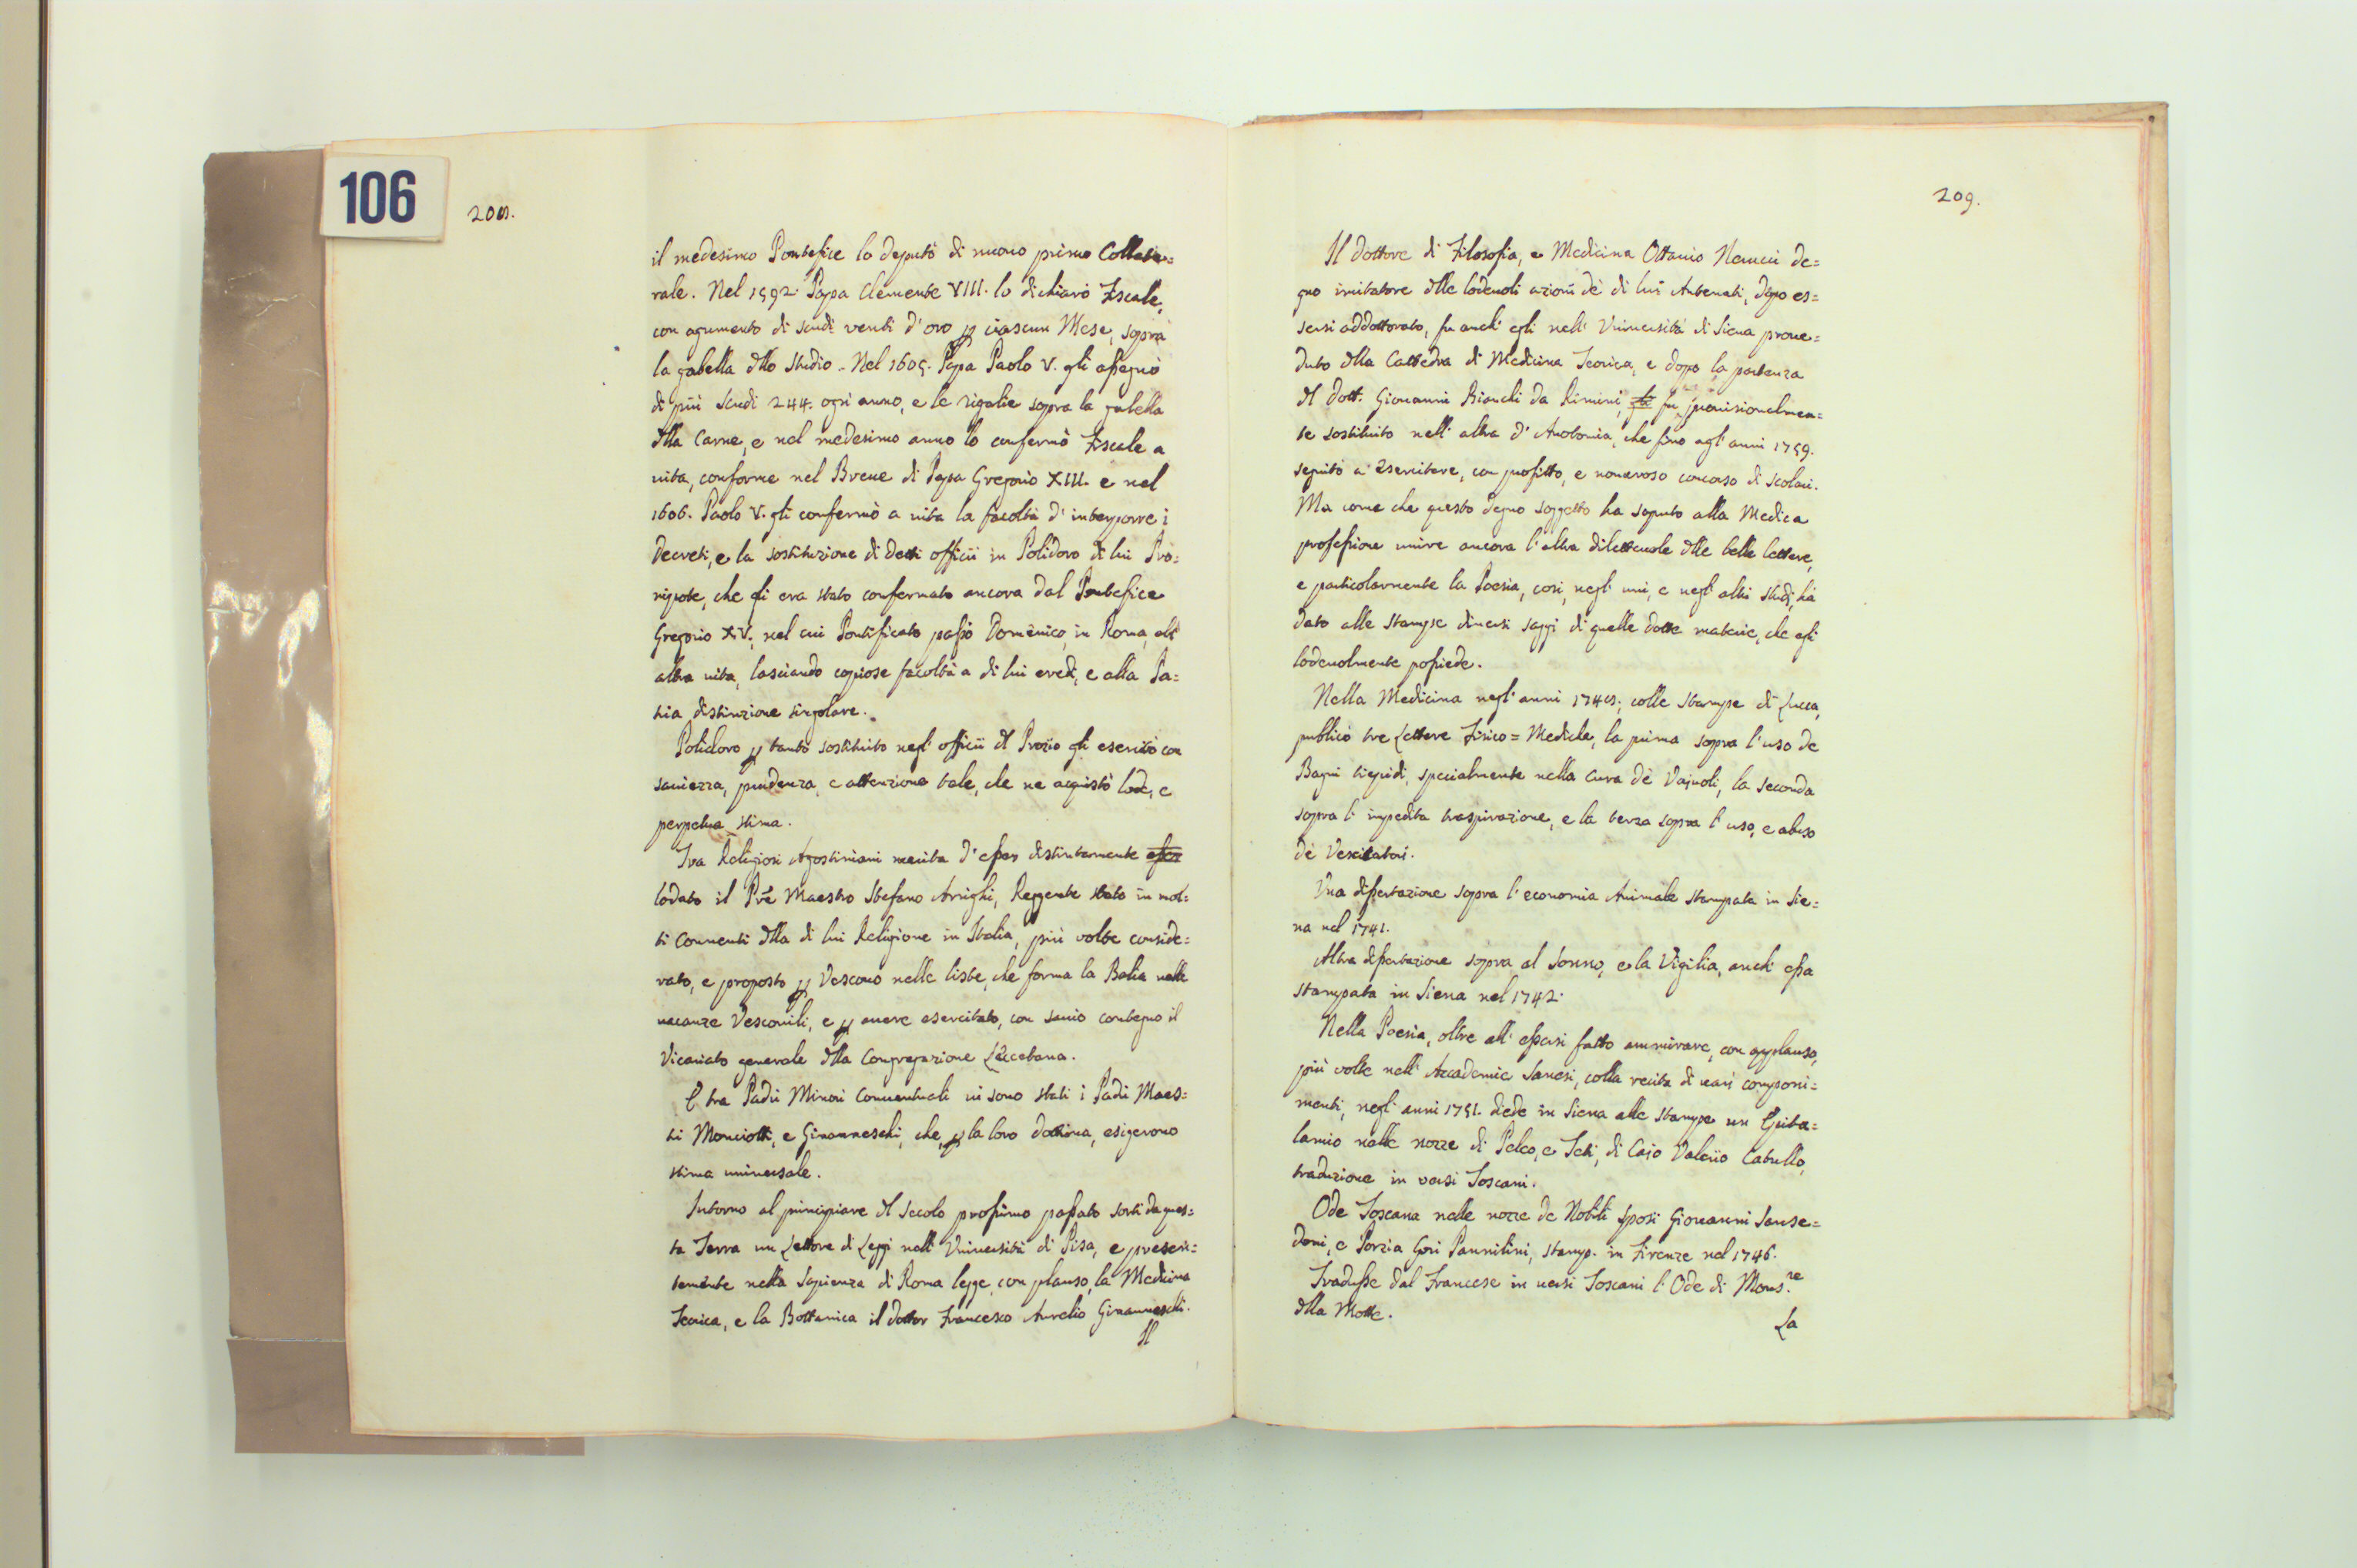 106
208.
il medesimo Pontefice lo deputò di nuouo primo Collate=
rale. Nel 1592. Papa Clemente VIII. lo dichiarò Fiscale,
con agumento di scudi venti d'oro p ciascun Mese, sopra
la gabella dllo Studio. Nel 1605. Papa Paolo V. gli assegnò
di più scudi 244. ogni anno, e le rigalie sopra la gabella
dlla Carne, e nel medesimo anno lo confermò Fiscale a
uita, conforme nel Breue di Papa Gregorio XIII. e nel
1606. Paolo V. gli confermò a uita la facoltà d'interporre i
Decreti, e la sostituzione di detti officii in Polidoro di lui Pro=
nipote, che gli era stato confermato ancora dal Pontefice
Gregorio XV., nel cui Pontificato passò Domenico, in Roma, all'
altra uita, lasciando copiose facoltà a di lui eredi, e alla Pa=
tria distinzione singolare.
Polidoro p tanto sostituito negl'officii dl Prozio gli esercitò con
sauiezza, prudenza, e attenzione tale, che ne acquistò lode, e
perpetua stima.
Tra Religiosi Agostiniani merita d'esser distintamente esser
lodato il Prē Maestro Stefano Arrighi, Reggente stato in mol=
ti Conuenti dlla di lui Religione in Italia, più volte conside=
rato, e proposto p Vescouo nelle liste, che forma la Balia nelle
uacanze Vescouili, e p auere esercitato, con sauio contegno il
Vicariato generale dlla Congregazione Leccetana.
E tra Padri Minori Conuentuali ui sono stati i Padri Maes=
tri Monciotti, e Ginanneschi, che, p la loro dottrina, esigerono
stima uniuersale.
Intorno al principiare dl secolo prossimo passato sortì da ques=
ta Terra un Lettore di Leggi nell'Vniuersità di Pisa, e presen=
temente nella Sapienza di Roma legge, con plauso, la Medicina
Teorica, e la Bottanica il dottor Francesco Aurelio Ginanneschi.
Il
209.
Il dottore di Filosofia, e Medicina Ottauio Nerucci de=
gno imitatore dlle lodeuoli azioni dè di lui Antenati, dopo es=
sersi addottorato, fu anch'egli nell'Vniuersità di Siena proue=
duto dlla Cattedra di Medicina Teorica, e dopo la partenza
dl Dott. Giouanni Bianchi da Rimini, fu prouisionalmen=
te sostituito nell'altra d'Anotomia, che sino agl'anni 1759.
seguitò a esercitare, con profitto, e nomeroso concorso di scolari.
Ma come che questo degno soggetto ha saputo alla Medica
professione unire ancora l'altra dilettevole dlle belle lettere,
e particolarmente la Poesia, così, negl'uni, e negl'altri studi, hà
dato alle stampe diuersi saggi di quelle dotte materie, che egli
lodeuolmente possiede.
Nella Medicina negl'anni 1748., colle stampe di Lucca,
publicò tre Lettere Fisico=Mediche, la prima sopra l'uso de
Bagni tiepidi, specialmente nella cura dè Vajuoli, la seconda
sopra l'impedita traspirazione, e la terza sopra l'uso, e abuso
dè Vescicatori.
Vna dissertazione sopra l'economia Animale stampata in Sie=
na nel 1741.
Altra dissertazione sopra al sonno, e la Vigilia, anch'essa
stampata in Siena nel 1742.
Nella Poesia, oltre all'essersi fatto ammirare, con applauso,
più volte nell'Accademie Sanesi, colla recita di uari componi=
menti, negl'anni 1751. diede in Siena alle stampe un Epita=
lamio nelle nozze di Peleo, e Teti, di Cajo Valerio Catullo,
traduzione in versi Toscani.
Ode Toscana nelle nozze de Nobili Sposi Giouanni Sanse=
doni, e Porzia Gori Pannilini, stamp. in Firenze nel 1746.
Tradusse dal Francese in uersi Toscani l'Ode di Mons.re
dlla Motte.
La